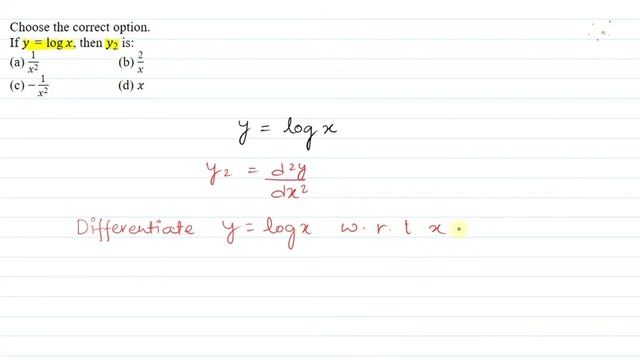 Choose the correct option.
If y = log x, then y₂ is:
(a) 1/x² (b) 2/x
(c) −1/x² (d) x
y = log x
y₂ = d²y/dx²
Differentiate y = log x w.r.t x.